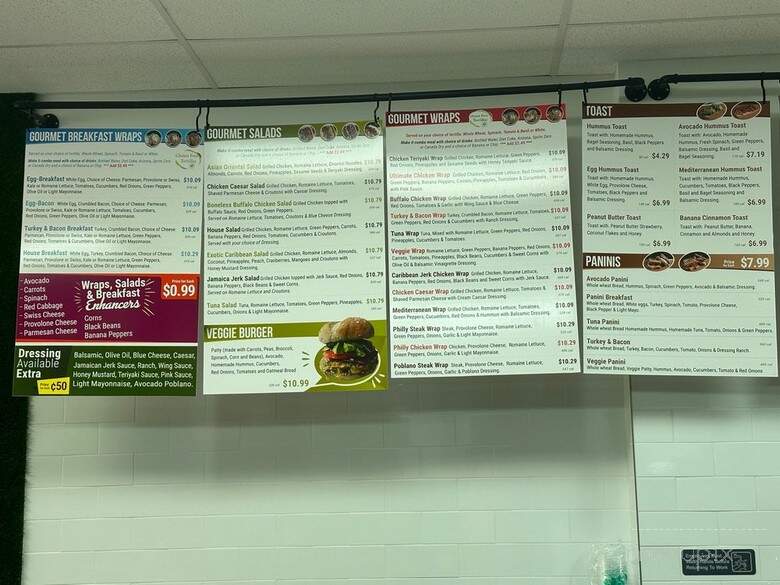 GOURMET BREAKFAST WRAPS
Egg-Breakfast White Egg, Choice of Cheese: Parmesan, Provolone or Swiss, $10.09
Kale or Romaine Lettuce, Tomatoes, Cucumbers, Red Onions, Green Peppers,
Olive Oil or Light Mayonnaise.
Egg-Bacon White Egg, Crumbled Bacon, Choice of Cheese: Parmesan, $10.09
Provolone or Swiss, Kale or Romaine Lettuce, Tomatoes, Cucumbers,
Red Onions, Green Peppers, Olive Oil or Light Mayonnaise.
Turkey & Bacon Breakfast Turkey, Crumbled Bacon, Choice of Cheese $10.09
Parmesan, Provolone or Swiss, Kale or Romaine Lettuce, Green Peppers,
Tomatoes & Cucumbers, Olive Oil or Light Mayonnaise.
House Breakfast White Egg, Turkey, Crumbled Bacon, Choice of Cheese: $10.29
Parmesan, Provolone or Swiss, Kale or Romaine Lettuce, Green Peppers,
Red Onions, Tomatoes & Cucumbers, Olive Oil or Light Mayonnaise.
- Avocado
- Carrots
- Spinach
- Red Cabbage
- Swiss Cheese
- Provolone Cheese
- Parmesan Cheese
Wraps, Salads
& Breakfast
Enhancers
Corns
Black Beans
Banana Peppers
Price for Each
$0.99
Dressing
Available
Extra
¢50
Balsamic, Olive Oil, Blue Cheese, Caesar,
Jamaican Jerk Sauce, Ranch, Wing Sauce,
Honey Mustard, Teriyaki Sauce, Pink Sauce,
Light Mayonnaise, Avocado Poblano.
GOURMET SALADS
Asian Oriental Salad Grilled Chicken, Romaine Lettuce, Oriental Noodles, $10.79
Almonds, Carrots, Red Onions, Pineapples, Sesame Seeds & Teriyaki Dressing.
Chicken Caesar Salad Grilled Chicken, Romaine Lettuce, Tomatoes, $10.79
Shaved Parmesan Cheese & Croutons with Caesar Dressing.
Boneless Buffalo Chicken Salad Grilled Chicken topped with $10.79
Buffalo Sauce, Red Onions, Green Peppers,
Romaine Lettuce, Tomatoes, Croutons & Blue Cheese Dressing
House Salad Grilled Chicken, Romaine Lettuce, Green Peppers, Carrots, $10.79
Banana Peppers, Red Onions, Tomatoes, Cucumbers & Croutons
Served with your choice of Dressing.
Exotic Caribbean Salad Grilled Chicken, Romaine Lettuce, Almonds, $10.79
Coconut, Pineapples, Peach, Cranberries, Mangoes and Croutons with
Honey Mustard Dressing.
Jamaica Jerk Salad Grilled Chicken topped with Jerk Sauce, Red Onions, $10.79
Banana Peppers, Black Beans & Sweet Corns.
Served on Romaine Lettuce and Croutons
Tuna Salad Tuna, Romaine Lettuce, Tomatoes, Green Peppers, Pineapples, $10.79
Cucumbers, Onions & Light Mayonnaise.
VEGGIE BURGER
Patty (made with Carrots, Peas, Broccoli,
Spinach, Corn and Beans), Avocado,
Homemade Hummus, Cucumbers,
Red Onions, Tomatoes and Oatmeal Bread
$10.99
GOURMET WRAPS
Served on your choice of tortilla: Whole Wheat, Spinach, Tomato & Basil or White.
Chicken Teriyaki Wrap Grilled Chicken, Romaine Lettuce, Green Peppers, $10.09
Red Onions, Pineapples and Sesame Seeds with Honey Teriyaki Sauce.
Ultimate Chicken Wrap Grilled Chicken, Romaine Lettuce, Red Onions, $10.09
Green Peppers, Banana Peppers, Carrots, Pineapples, Tomatoes & Cucumbers
with Pink Sauce
Buffalo Chicken Wrap Grilled Chicken, Romaine Lettuce, Green Peppers, $10.09
Red Onions, Tomatoes & Garlic with Wing Sauce & Blue Cheese
Turkey & Bacon Wrap Turkey, Crumbled Bacon, Romaine Lettuce, Tomatoes, $10.09
Green Peppers, Red Onions & Cucumbers with Ranch Dressing.
Tuna Wrap Tuna, Mixed with Romaine Lettuce, Green Peppers, Red Onions, $10.09
Pineapples, Cucumbers & Tomatoes.
Veggie Wrap Romaine Lettuce, Green Peppers, Banana Peppers, Red Onions, $10.09
Carrots, Tomatoes, Pineapples, Black Beans, Cucumbers & Sweet Corns with
Olive Oil & Balsamic Vinaigrette Dressing.
Caribbean Jerk Chicken Wrap Grilled Chicken, Romaine Lettuce, $10.09
Banana Peppers, Red Onions, Black Beans & Sweet Corns with Jerk Sauce.
Chicken Caesar Wrap Grilled Chicken, Romaine Lettuce, Tomatoes & $10.09
Shaved Parmesan Cheese with Cream Caesar Dressing.
Mediterranean Wrap Grilled Chicken, Romaine Lettuce, Tomatoes, $10.09
Green Peppers, Cucumbers, Red Onions & Hummus with Balsamic Dressing.
Philly Steak Wrap Steak, Provolone Cheese, Romaine Lettuce, $10.29
Green Peppers, Onions, Garlic & Light Mayonnaise.
Philly Chicken Wrap Chicken, Provolone Cheese, Romaine Lettuce, $10.29
Green Peppers, Onions, Garlic & Light Mayonnaise.
Poblano Steak Wrap Steak, Provolone Cheese, Romaine Lettuce, $10.29
Green Peppers, Onions, Garlic & Poblano Dressing.
TOAST
Hummus Toast
Toast with: Homemade Hummus,
Bagel Seasoning, Basil, Black Peppers
and Balsamic Dressing.
$4.29
Egg Hummus Toast
Toast with: Homemade Hummus,
White Egg, Provolone Cheese,
Tomatoes, Black Peppers and
Balsamic Dressing.
$6.99
Peanut Butter Toast
Toast with: Peanut Butter Strawberry,
Coconut Flakes and Honey
$6.99
Avocado Hummus Toast
Toast with: Avocado, Homemade
Hummus, Fresh Spinach, Green Peppers,
Balsamic Dressing, Basil and
Bagel Seasoning
$7.19
Mediterranean Hummus Toast
Toast with: Homemade Hummus,
Cucumbers, Tomatoes, Black Peppers,
Basil and Bagel Seasoning and
Balsamic Dressing.
$6.99
Banana Cinnamon Toast
Toast with: Peanut Butter, Banana,
Cinnamon and Almonds and Honey
$6.99
PANINIS
Price for Each $7.99
Avocado Panini
Whole wheat Bread, Hummus, Spinach, Green Peppers, Avocado & Balsamic Dressing.
Panini Breakfast
Whole wheat Bread, White eggs, Turkey, Spinach, Tomato, Provolone Cheese,
Black Pepper & Light Mayo.
Tuna Panini
Whole wheat Bread Homemade Hummus, Homemade Tuna, Tomato, Onions & Green Peppers.
Turkey & Bacon
Whole wheat Bread, Turkey, Bacon, Cucumbers, Tomato, Onions & Dressing Ranch.
Veggie Panini
Whole wheat Bread, Veggie Patty, Hummus, Avocado, Cucumbers, Tomato & Red Onions
Employees Must
Wash Hands Before
Returning To Work